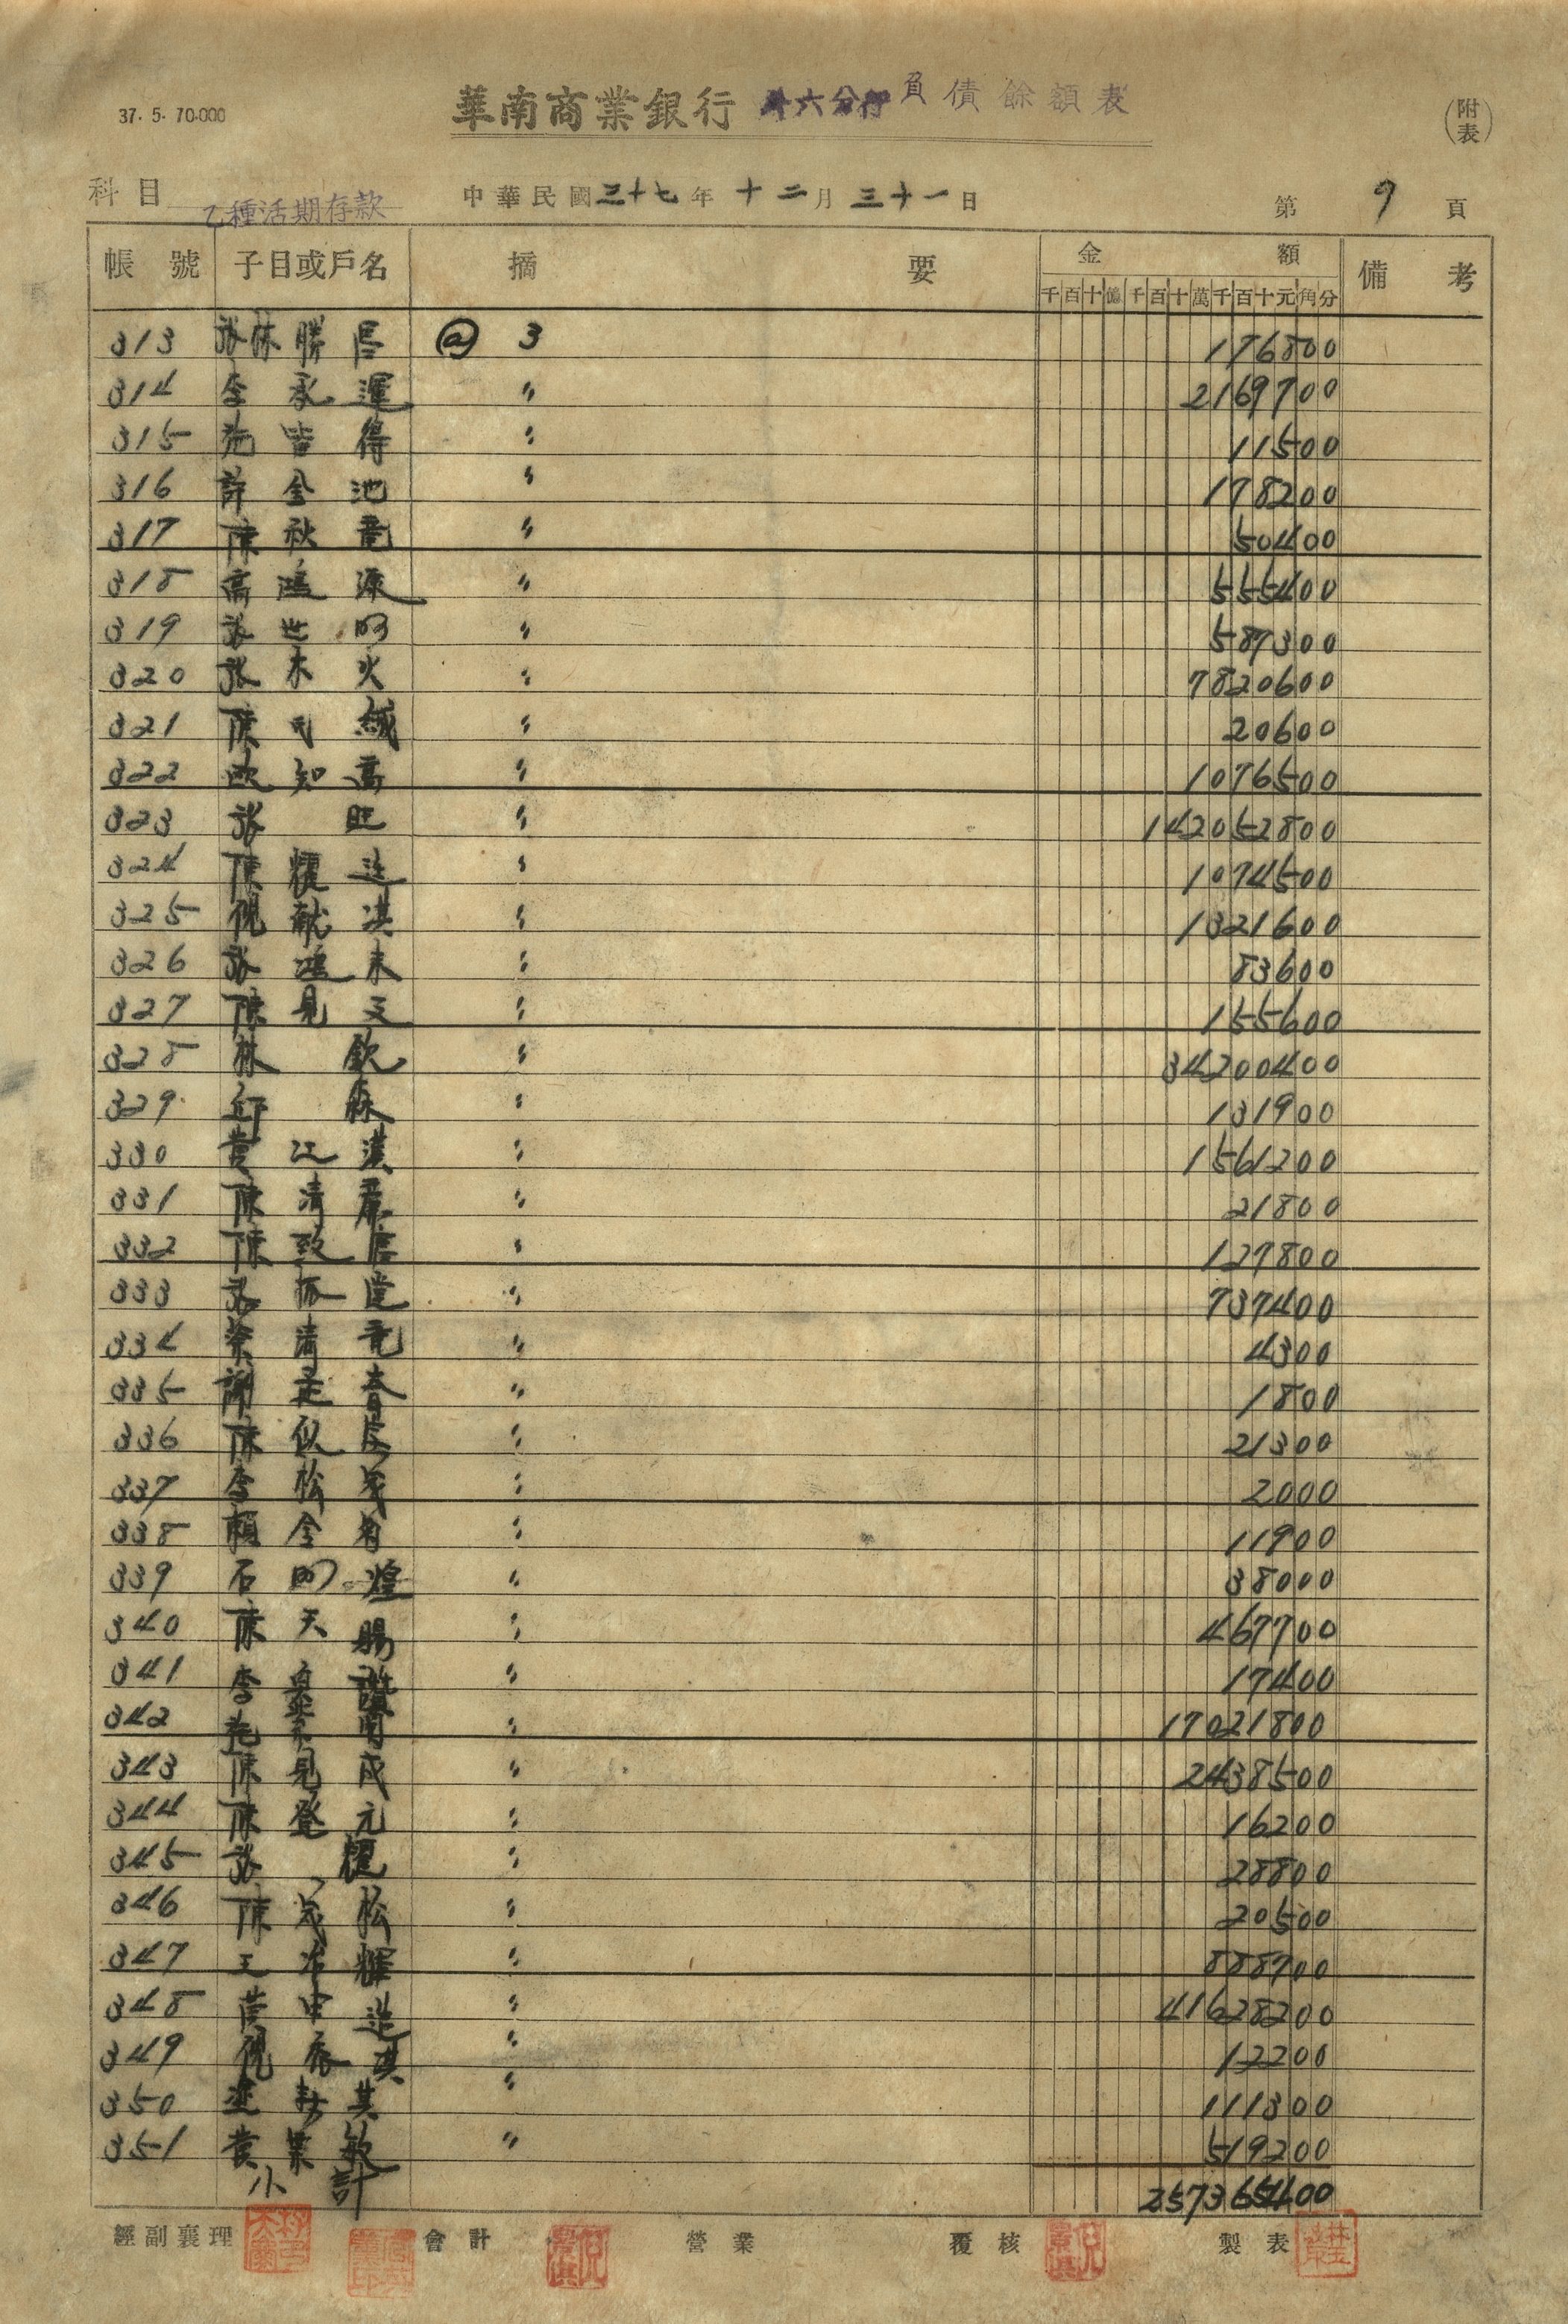 37. 5. 70.000
華南商業銀行 斗六分行 負債餘額表
(附表)
科目 乙種活期存款 中華民國三十七年十二月三十一日 第9頁
帳號 子目或戶名 摘要 金額 備考
千百十億千百十萬千百十元角分
313 張林勝 @ 3 176800
314 李承運 〃 2169700
315 皆得 〃 11500
316 許金池 〃 178200
317 陳秋 〃 50400
318 高鴻源 〃 555400
319 張世明 〃 587300
320 張木火 〃 7820600
321 陳 〃 20600
322 歐知高 〃 1076500
323 張旺 〃 142052800
324 陳耀 〃 1074500
325 倪献淇 〃 1321600
326 張鴻 〃 83600
327 陳見 〃 155600
328 林欽 〃 34200400
329 邱森 〃 131900
330 黃江漢 〃 1561200
331 陳清 〃 21800
332 陳 〃 127800
333 張振 〃 737400
334 清 〃 4300
335 謝春 〃 1800
336 陳 〃 21300
337 李松茂 〃 2000
338 賴金 〃 11900
339 石明煌 〃 38000
340 陳天賜 〃 467700
341 李讚 〃 17400
342 〃 17021800
343 陳見成 〃 2438500
344 陳登元 〃 16200
345 張耀 〃 28800
346 陳茂松 〃 20500
347 王輝 〃 888700
348 黃申 〃 41628200
349 倪振淇 〃 12200
350 其 〃 111300
351 黃業敏 〃 519200
小計 257365400
經副襄理 會計 營業 覆核 製表